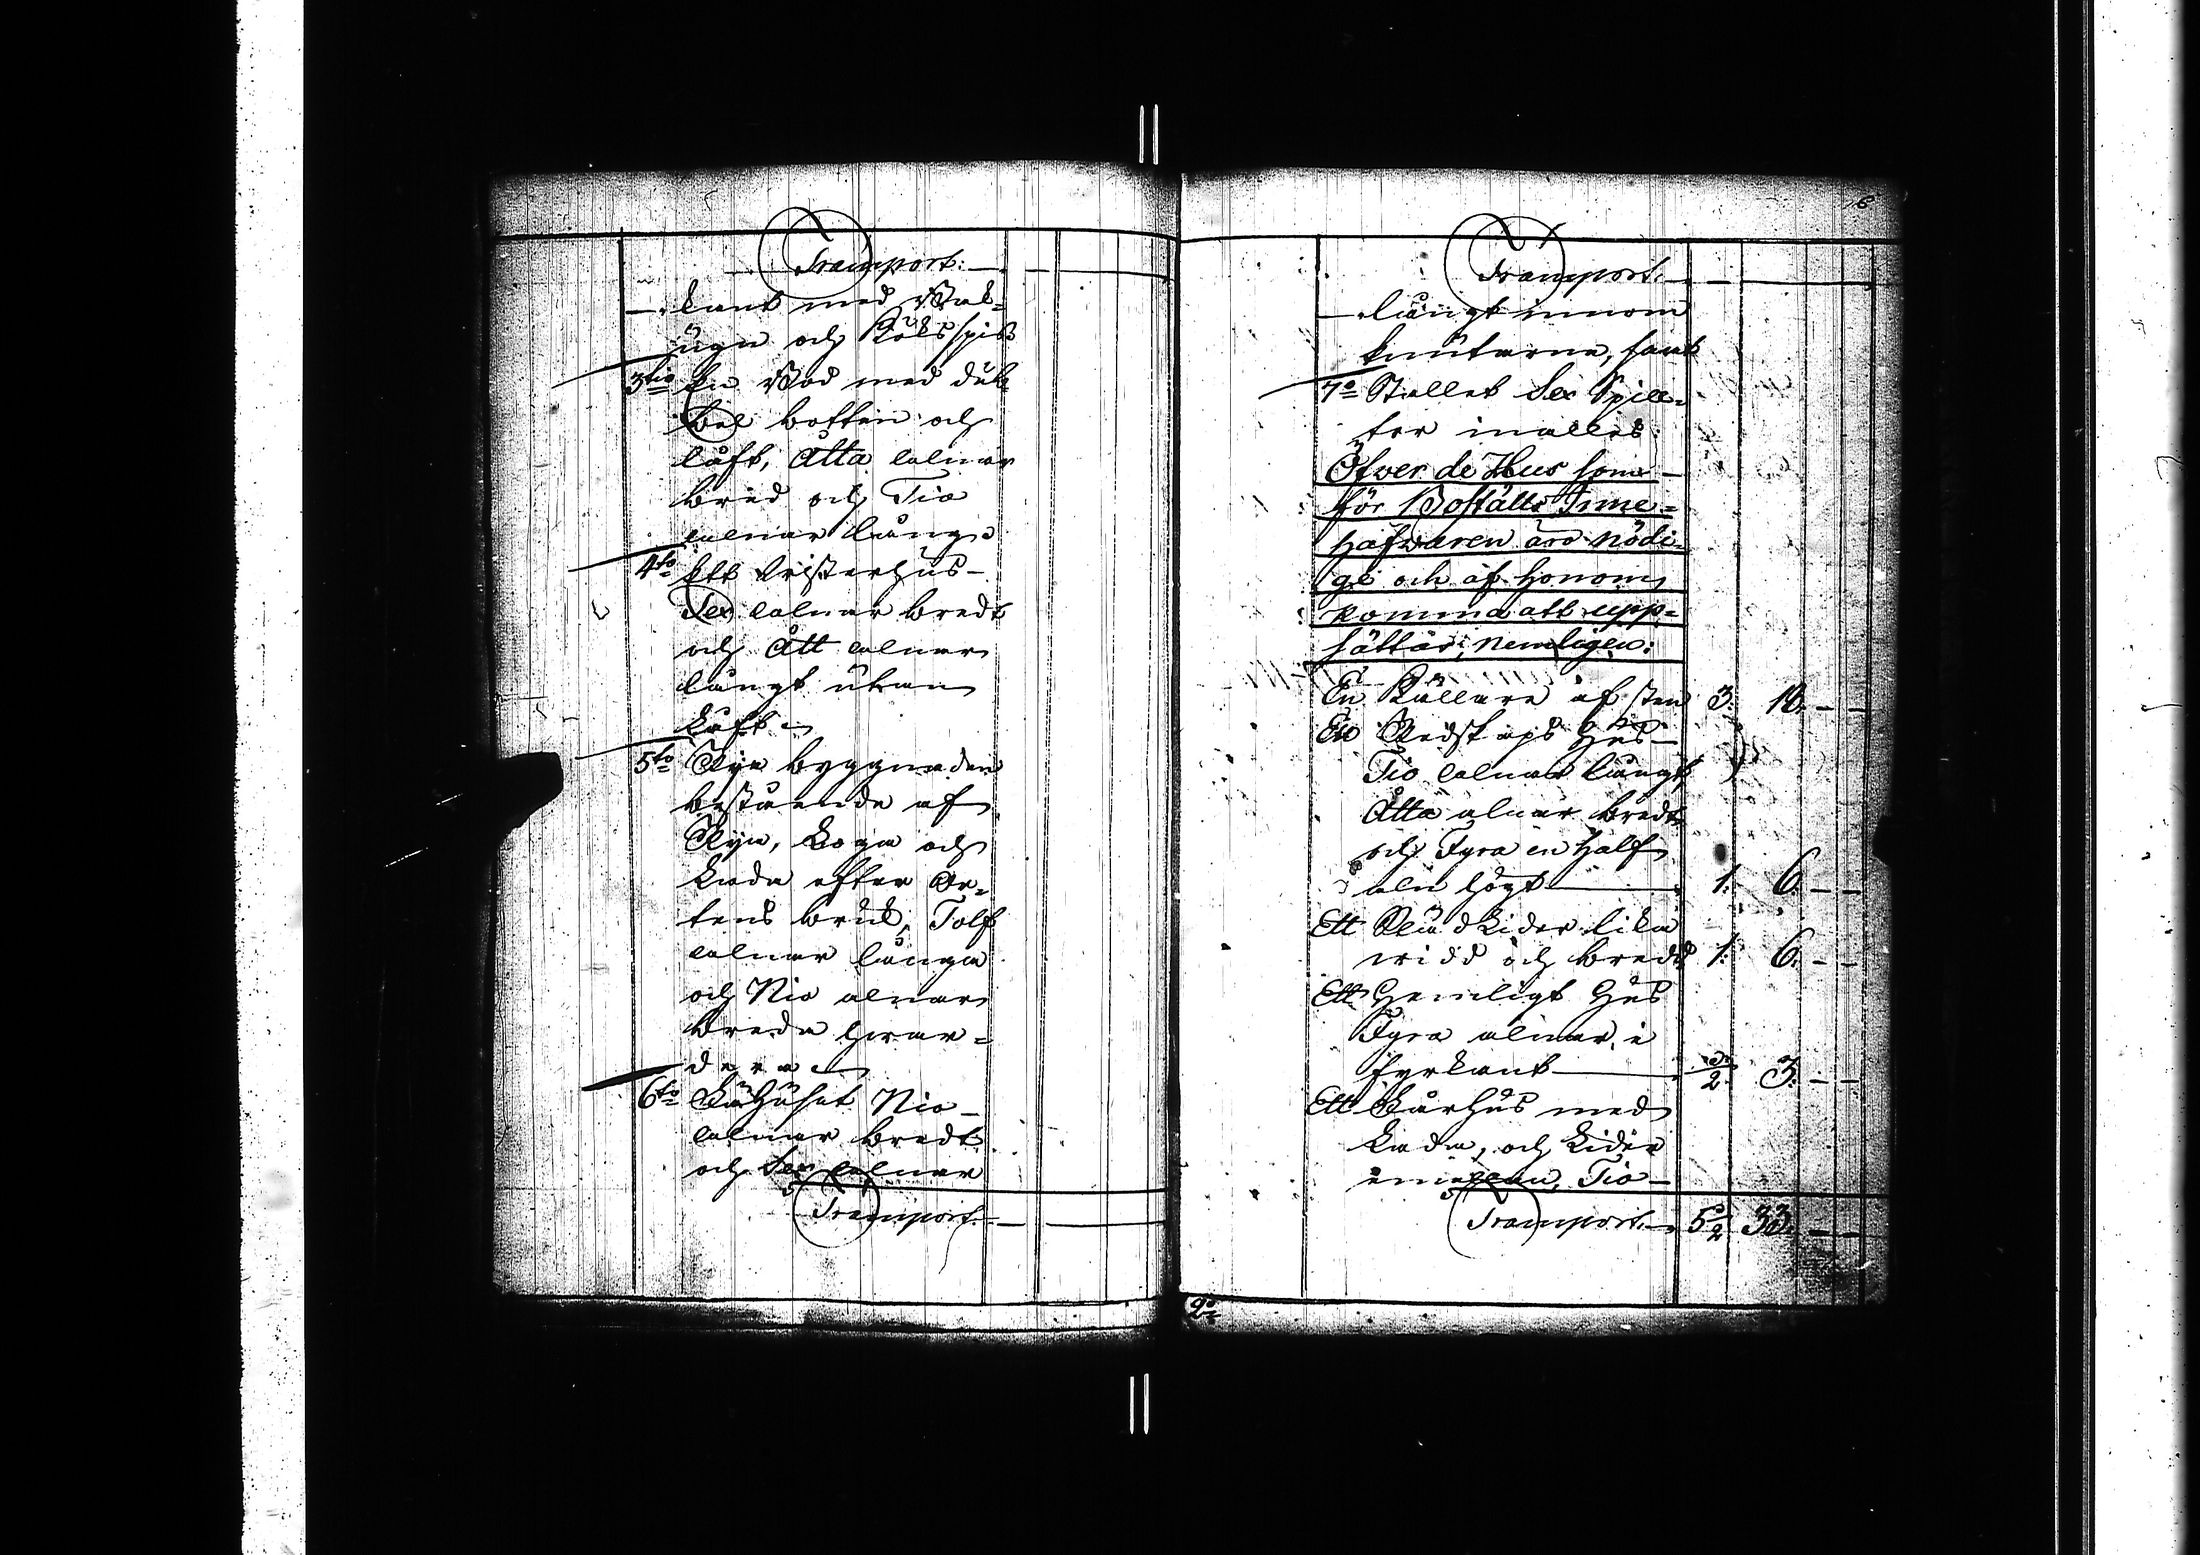 Transport.
kant med Bak-
ugn och Köksspis
3tio En Bod med dub
bel botten och
låft, Åtta alnar
bred och Tio
alnar lång
4to Ett Fristerhus
Sex alnar bredt
och Ått alnar
långt utan
Låft
5to Rye byggnaden
bestående af
Rya, Loga och
Lada efter Or-
tens bruk, Tolf
alnar långa
och Nio alnar
breda hvar-
dera
6to Fähuset Nio
alnar bredt
och Sex alnar
Transport.
6
Transport.
långt innom
knutarne, samt
7o Stallet Sex Spill-
tor inalles.
Öfver de Hus som
för Boställs Inne-
hafvaren äro nödi-
ge och af honom
komma att upp-
sättas; nemligen:
En Källare af sten 3. 18. - -
Ett Redskaps Hus
Tio alnar långt,
Åtta alnar bredt
och Fyra en half
aln högt 1. 6. - -
Ett Lider lika
vidd och bredd 1. 6. - -
Ett Hemligt Hus
Fyra alnar i
fyrkant 1/2. 3. - -
Ett Fårhus med
Lada, och Lider
emellan, Tio
Transport. 5 1/2 33. - -
2o